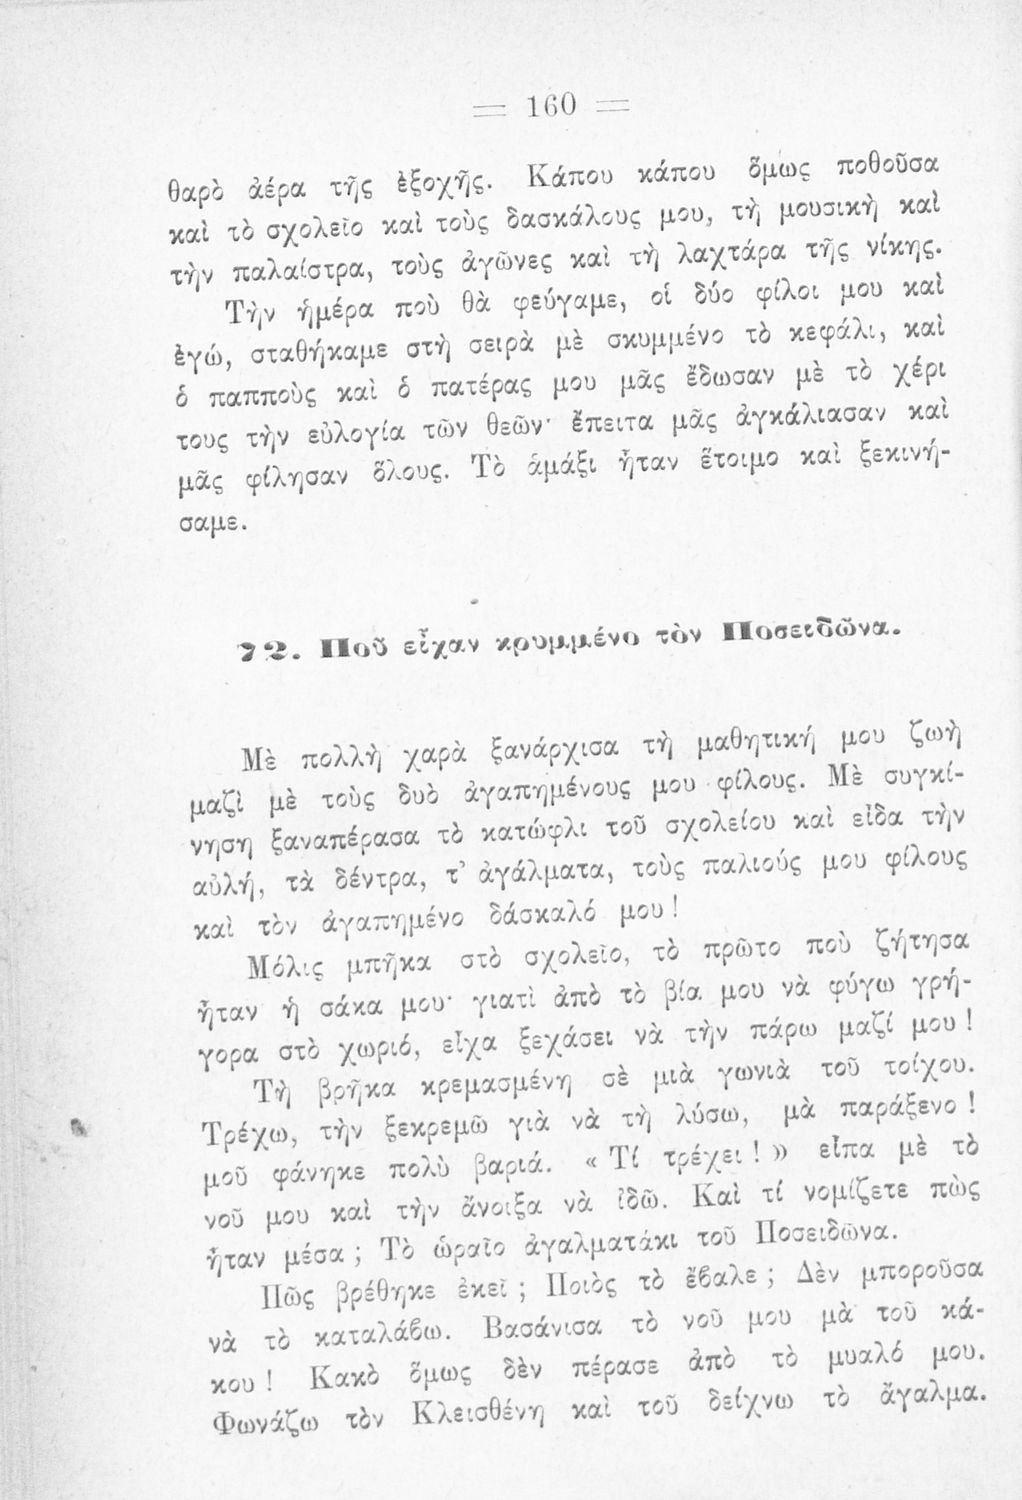 = 160 =
θαρὸ ἀέρα τῆς ἐξοχῆς. Κάπου κάπου ὅμως ποθοῦσα
καὶ τὸ σχολεῖο καὶ τοὺς δασκάλους μου, τὴ μουσικὴ καὶ
τὴν παλαίστρα, τοὺς ἀγῶνες καὶ τὴ λαχτάρα τῆς νίκης.
Τὴν ἡμέρα ποὺ θὰ φεύγαμε, οἱ δύο φίλοι μου καὶ
ἐγώ, σταθήκαμε στὴ σειρὰ μὲ σκυμμένο τὸ κεφάλι, καὶ
ὁ παπποὺς καὶ ὁ πατέρας μου μᾶς ἔδωσαν μὲ τὸ χέρι
τους τὴν εὐλογία τῶν θεῶν· ἔπειτα μᾶς ἀγκάλιασαν καὶ
μᾶς φίλησαν ὅλους. Τὸ ἁμάξι ἦταν ἕτοιμο καὶ ξεκινή-
σαμε.
72. Ποῦ εἶχαν κρυμμένο τὸν Ποσειδῶνα.
Μὲ πολλὴ χαρὰ ξανάρχισα τὴ μαθητική μου ζωὴ
μαζὶ μὲ τοὺς δυὸ ἀγαπημένους μου φίλους. Μὲ συγκί-
νηση ξαναπέρασα τὸ κατώφλι τοῦ σχολείου καὶ εἶδα τὴν
αὐλή, τὰ δέντρα, τ’ ἀγάλματα, τοὺς παλιούς μου φίλους
καὶ τὸν ἀγαπημένο δάσκαλό μου!
Μόλις μπῆκα στὸ σχολεῖο, τὸ πρῶτο ποὺ ζήτησα
ἦταν ἡ σάκα μου· γιατὶ ἀπὸ τὸ βία μου νὰ φύγω γρή-
γορα στὸ χωριό, εἶχα ξεχάσει νὰ τὴν πάρω μαζί μου!
Τὴ βρῆκα κρεμασμένη σὲ μιὰ γωνιὰ τοῦ τοίχου.
Τρέχω, τὴν ξεκρεμῶ γιὰ νὰ τὴ λύσω, μὰ παράξενο!
μοῦ φάνηκε πολὺ βαριά. «Τί τρέχει!» εἶπα μὲ τὸ
νοῦ μου καὶ τὴν ἄνοιξα νὰ ἰδῶ. Καὶ τί νομίζετε πὼς
ἦταν μέσα; Τὸ ὡραῖο ἀγαλματάκι τοῦ Ποσειδῶνα.
Πῶς βρέθηκε ἐκεῖ; Ποιὸς τὸ ἔβαλε; Δὲν μποροῦσα
νὰ τὸ καταλάβω. Βασάνισα τὸ νοῦ μου μὰ τοῦ κά-
κου! Κακὸ ὅμως δὲν πέρασε ἀπὸ τὸ μυαλό μου.
Φωνάζω τὸν Κλεισθένη καὶ τοῦ δείχνω τὸ ἄγαλμα.